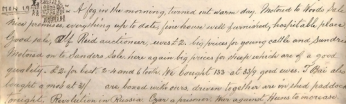 A fog in the morning, turned out warm day. Motored to Woods Sale
Nice premises everything up to date, fine house well furnished, hospitable place
Good sale, Alf Reid auctioneer, over £2 big prices for young cattle and sundries
on to Sanders Sale here again big prices for sheep which are of a good
quality. £2 for best 2 and 6 tooth. We bought 133 at 33/ good ewes. T Bui also
bought a mob at 31/. are boxed with ours, driven together are in shed paddock
tonight. Revolution in Russia Czar a prisoner. War against Huns to increase